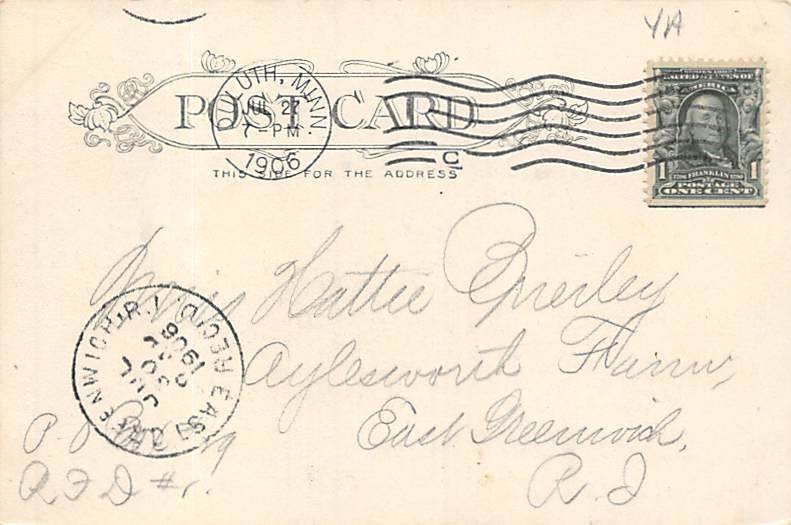 YA
DULUTH, MINN.
JUL 27
7-PM
1906
C
POST CARD
THIS SIDE FOR THE ADDRESS
UNITED STATES OF
AMERICA
1 FRANKLIN 1
POSTAGE
ONE CENT
Miss Hattie Brierley
Aylesworth Farm,
East Greenwich,
R. I
R F D #1.
EAST GREENWICH, R.I. REC'D
JUL
30
1906